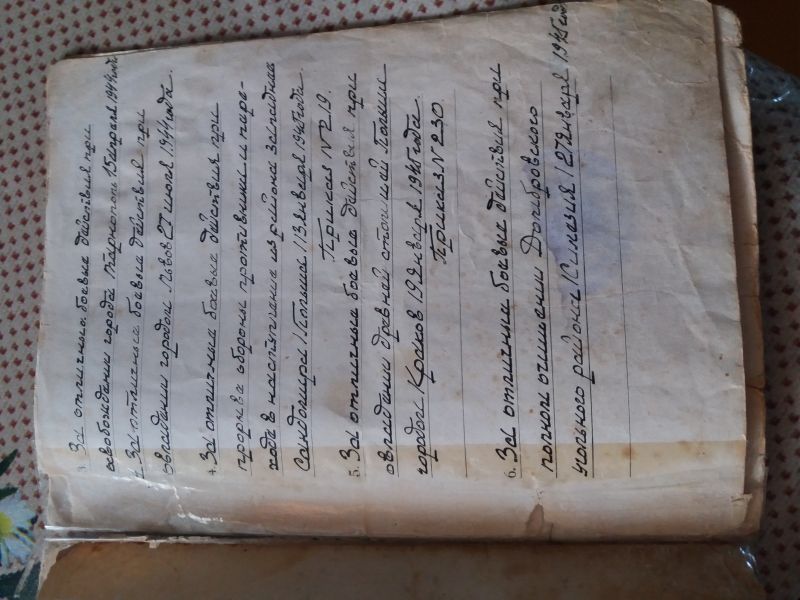 3. За отличные боевые действия при
освобождении города Тарнополь 15 апреля 1944 года
За отличные боевые действия при
овладении городом Львов 27 июля 1944 года.
4. За отличные боевые действия при
прорыве обороны противника и пере-
хода в наступление из района западнее
Сандомира /Польша/ 13 января 1945 года.
Приказ № 219.
5. За отличные боевые действия при
овладении древней столицей Польши
городом Краков 19 января 1945 года.
Приказ № 230
6. За отличные боевые действия при
полном очищении Домбровского
угольного района /Силезия/ 27 января 1945 года